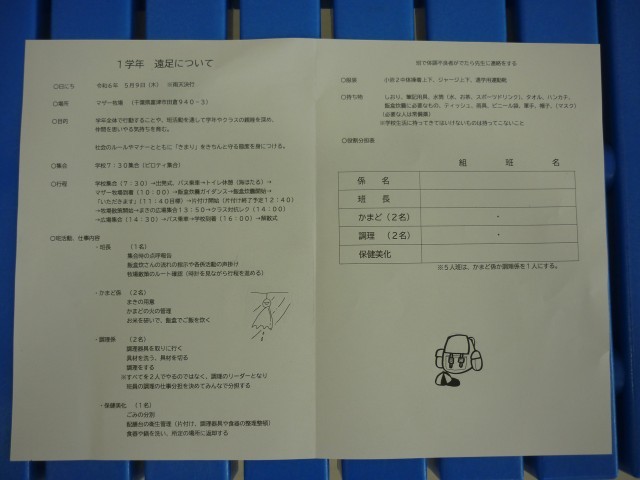 1学年 遠足について
○日にち 令和6年 5月9日（木） ※雨天決行
○場所 マザー牧場 （千葉県富津市田倉940－3）
○目的 学年全体で行動することや、班活動を通して学年やクラスの親睦を深め、
仲間を思いやる気持ちを育む。
社会のルールやマナーとともに「きまり」をきちんと守る態度を身につける。
○集合 学校7：30集合（ピロティ集合）
○行程 学校集合（7：30）→出発式、バス乗車→トイレ休憩（海ほたる）→
マザー牧場到着（10：00）→飯盒炊爨ガイダンス→飯盒炊爨開始→
「いただきます」（11：40目標）→片付け開始（片付け終了予定12：40）
→牧場散策開始→まきの広場集合13：50→クラス対抗レク（14：00）
→広場集合（14：30）→バス乗車→学校到着（16：00）→解散式
○班活動、仕事内容
・班長 （1名）
集合時の点呼報告
飯盒炊さんの流れの指示や各係活動の声掛け
牧場散策のルート確認（時計を見ながら行程を進める）
・かまど係 （2名）
まきの用意
かまどの火の管理
お米を研いで、飯盒でご飯を炊く
・調理係 （2名）
調理器具を取りに行く
具材を洗う、具材を切る
調理をする
※すべてを2人でやるのではなく、調理のリーダーとなり
班員の調理の仕事分担を決めてみんなで分担する
・保健美化 （1名）
ごみの分別
配膳台の衛生管理（片付け、調理器具や食器の整理整頓）
食器や鍋を洗い、所定の場所に返却する
班で体調不良者がでたら先生に連絡をする
○服装 小岩2中体操着上下、ジャージ上下、通学用運動靴
○持ち物 しおり、筆記用具、水筒（水、お茶、スポーツドリンク）、タオル、ハンカチ、
飯盒炊爨に必要なもの、ティッシュ、雨具、ビニール袋、軍手、帽子、（マスク）
（必要な人は常備薬）
※学校生活に持ってきてはいけないものは持ってこないこと
○役割分担表
組 班 名
係 名
班 長
かまど（2名） ・
調理 （2名） ・
保健美化
※5人班は、かまど係か調理係を1人にする。